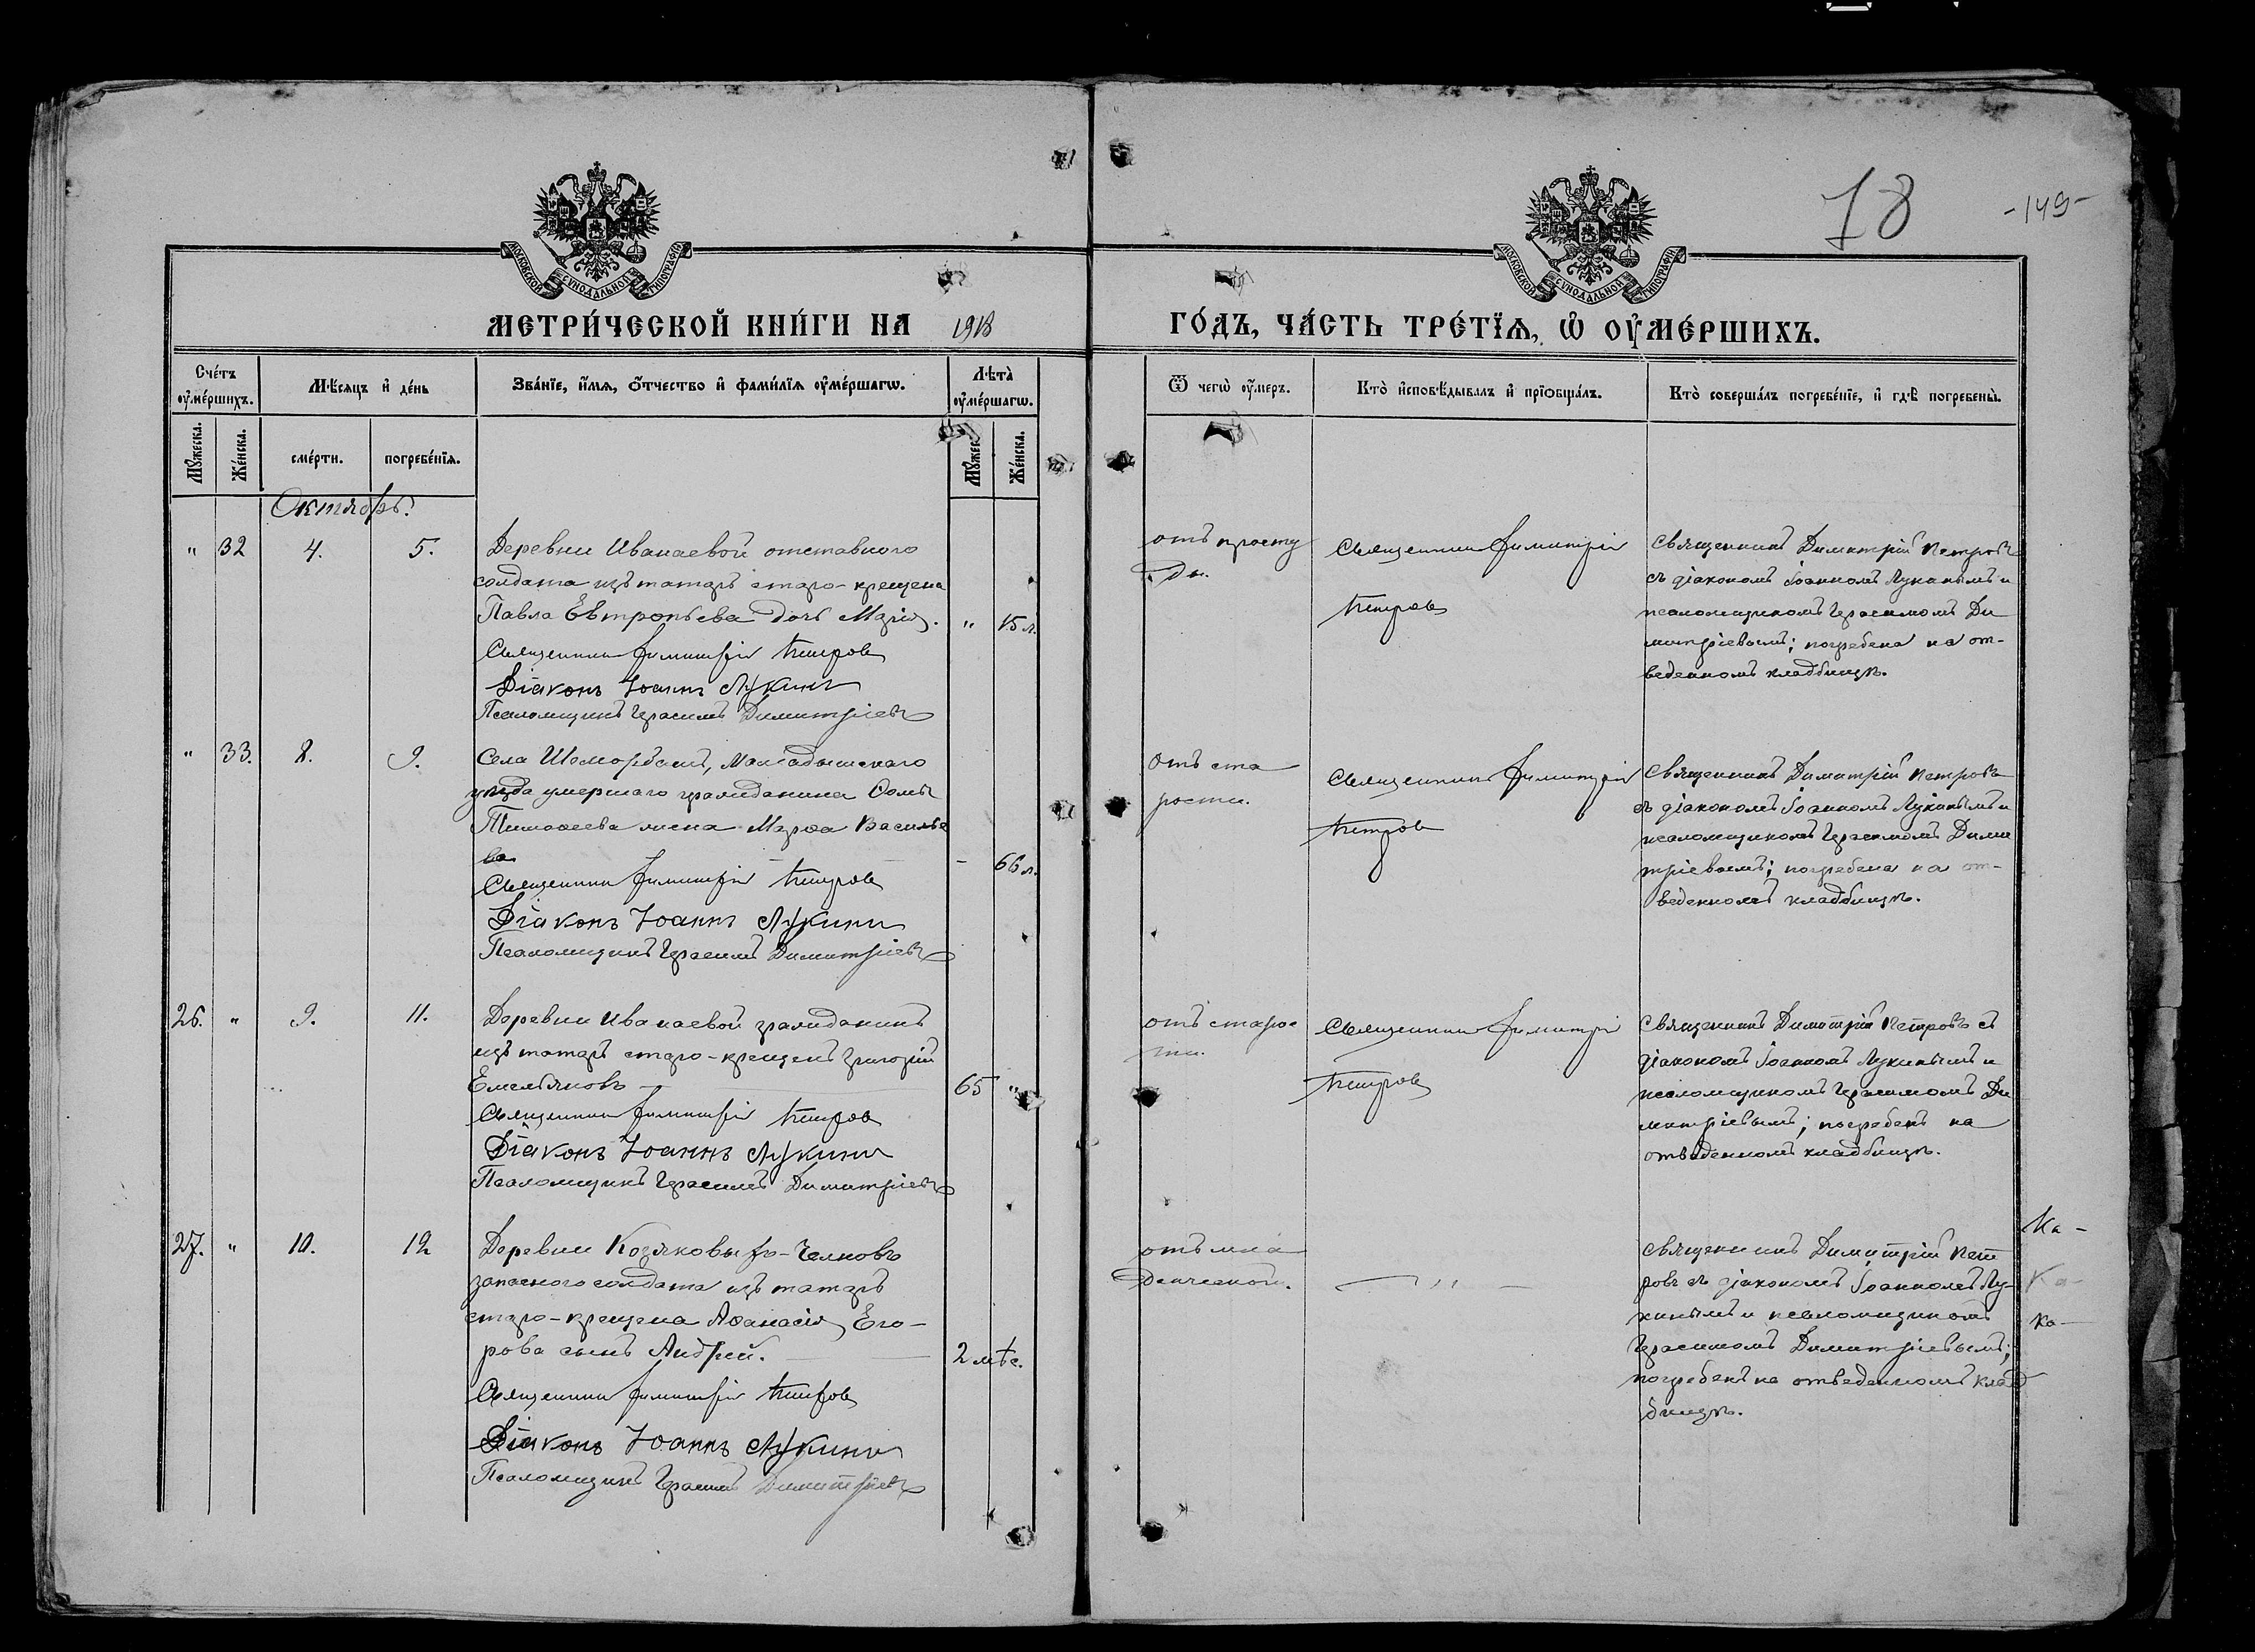 78
-149-
МОСКОВСКОЙ СѴНОДАЛЬНОЙ ТИПОГРАФІИ
МОСКОВСКОЙ СѴНОДАЛЬНОЙ ТИПОГРАФІИ
МЕТРИ́ЧЕСКОЙ КНИ́ГИ НА 1918 ГО́ДЪ, ЧА́СТЬ ТРЕ́ТЇѦ, Ѽ ОУ҆МЕ́РШИХЪ.
Сче́тъ оу҆ме́ршихъ.
Мѣ́сяцъ и҆ де́нь
Зва́нїе, и҆́мѧ, ѻ҆́тчество и҆ фами́лїѧ оу҆ме́ршагѡ.
Лѣта̀ оу҆ме́ршагѡ.
Ѿ чегѡ̀ оу҆́меръ.
Кто̀ и҆сповѣ́дывалъ и҆ прїѻбща́лъ.
Кто̀ соверша́лъ погребе́нїе, и҆ гдѣ̀ погребены̀.
Мꙋ́жеска.
Же́нска.
сме́рти.
погребе́нїѧ.
Мꙋ́жес
Же́нска.
Октябрь.
" 32 4. 5.
Деревни Иванаевой отставного
солдата изъ татаръ старо-крещена
Павла Евтропьева дочь Марія. " 15 л.
Священникъ Димитрій Петровъ
Діаконъ Іоаннъ Лукинъ
Псаломщикъ Герасимъ Димитріевъ
отъ просту
ды.
Священникъ Димитрій
Петровъ
Священникъ Димитрій Петровъ
съ діакономъ Іоанномъ Лукинымъ и
псаломщикомъ Герасимомъ Ди
митріевымъ; погребена на от-
веденномъ кладбищѣ.
" 33. 8. 9.
Села Шеморбашъ, Мамадышскаго
уѣзда умершаго гражданина Ѳомы
Тимоѳеева жена Марѳа Василье
ва - 66 л.
Священникъ Димитрій Петровъ
Діаконъ Іоаннъ Лукинъ
Псаломщикъ Герасимъ Димитріевъ
Отъ ста
рости.
Священникъ Димитрій
Петровъ
Священникъ Димитрій Петровъ
съ діакономъ Іоанномъ Лукинымъ и
псаломщикомъ Герасимомъ Дими
тріевымъ; погребена на от-
веденномъ кладбищѣ.
26. " 9. 11.
Деревни Иванаевой гражданинъ
изъ татаръ старо-крещенъ Григорій
Емельяновъ 65 "
Священникъ Димитрій Петровъ
Діаконъ Іоаннъ Лукинъ
Псаломщикъ Герасимъ Димитріевъ
отъ старос
ти.
Священникъ Димитрій
Петровъ
Священникъ Димитрій Петровъ съ
діакономъ Іоанномъ Лукинымъ и
псаломщикомъ Герасимомъ Ди
митріевымъ; погребенъ на
отведенномъ кладбищѣ.
27. " 10. 12
Деревни Козяковыхъ-Челновъ
запасного солдата изъ татаръ
старо-крещена Аѳанасія Его-
рова сынъ Андрей. 2 мѣс.
Священникъ Димитрій Петровъ
Діаконъ Іоаннъ Лукинъ
Псаломщикъ Герасимъ Димитріевъ
отъ мла
денческой.
— " —
Священникъ Димитрій Пет
ровъ съ діакономъ Іоанномъ Лу-
кинымъ и псаломщикомъ
Герасимомъ Димитріевымъ;
погребенъ на отведенномъ клад
бищѣ.
Ка-
Ка-
Ка-